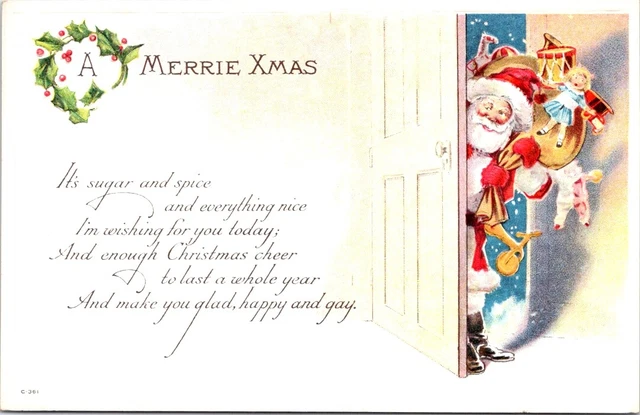 A MERRIE XMAS
It's sugar and spice
and everything nice
I'm wishing for you today;
And enough Christmas cheer
to last a whole year
And make you glad, happy and gay.
C-361